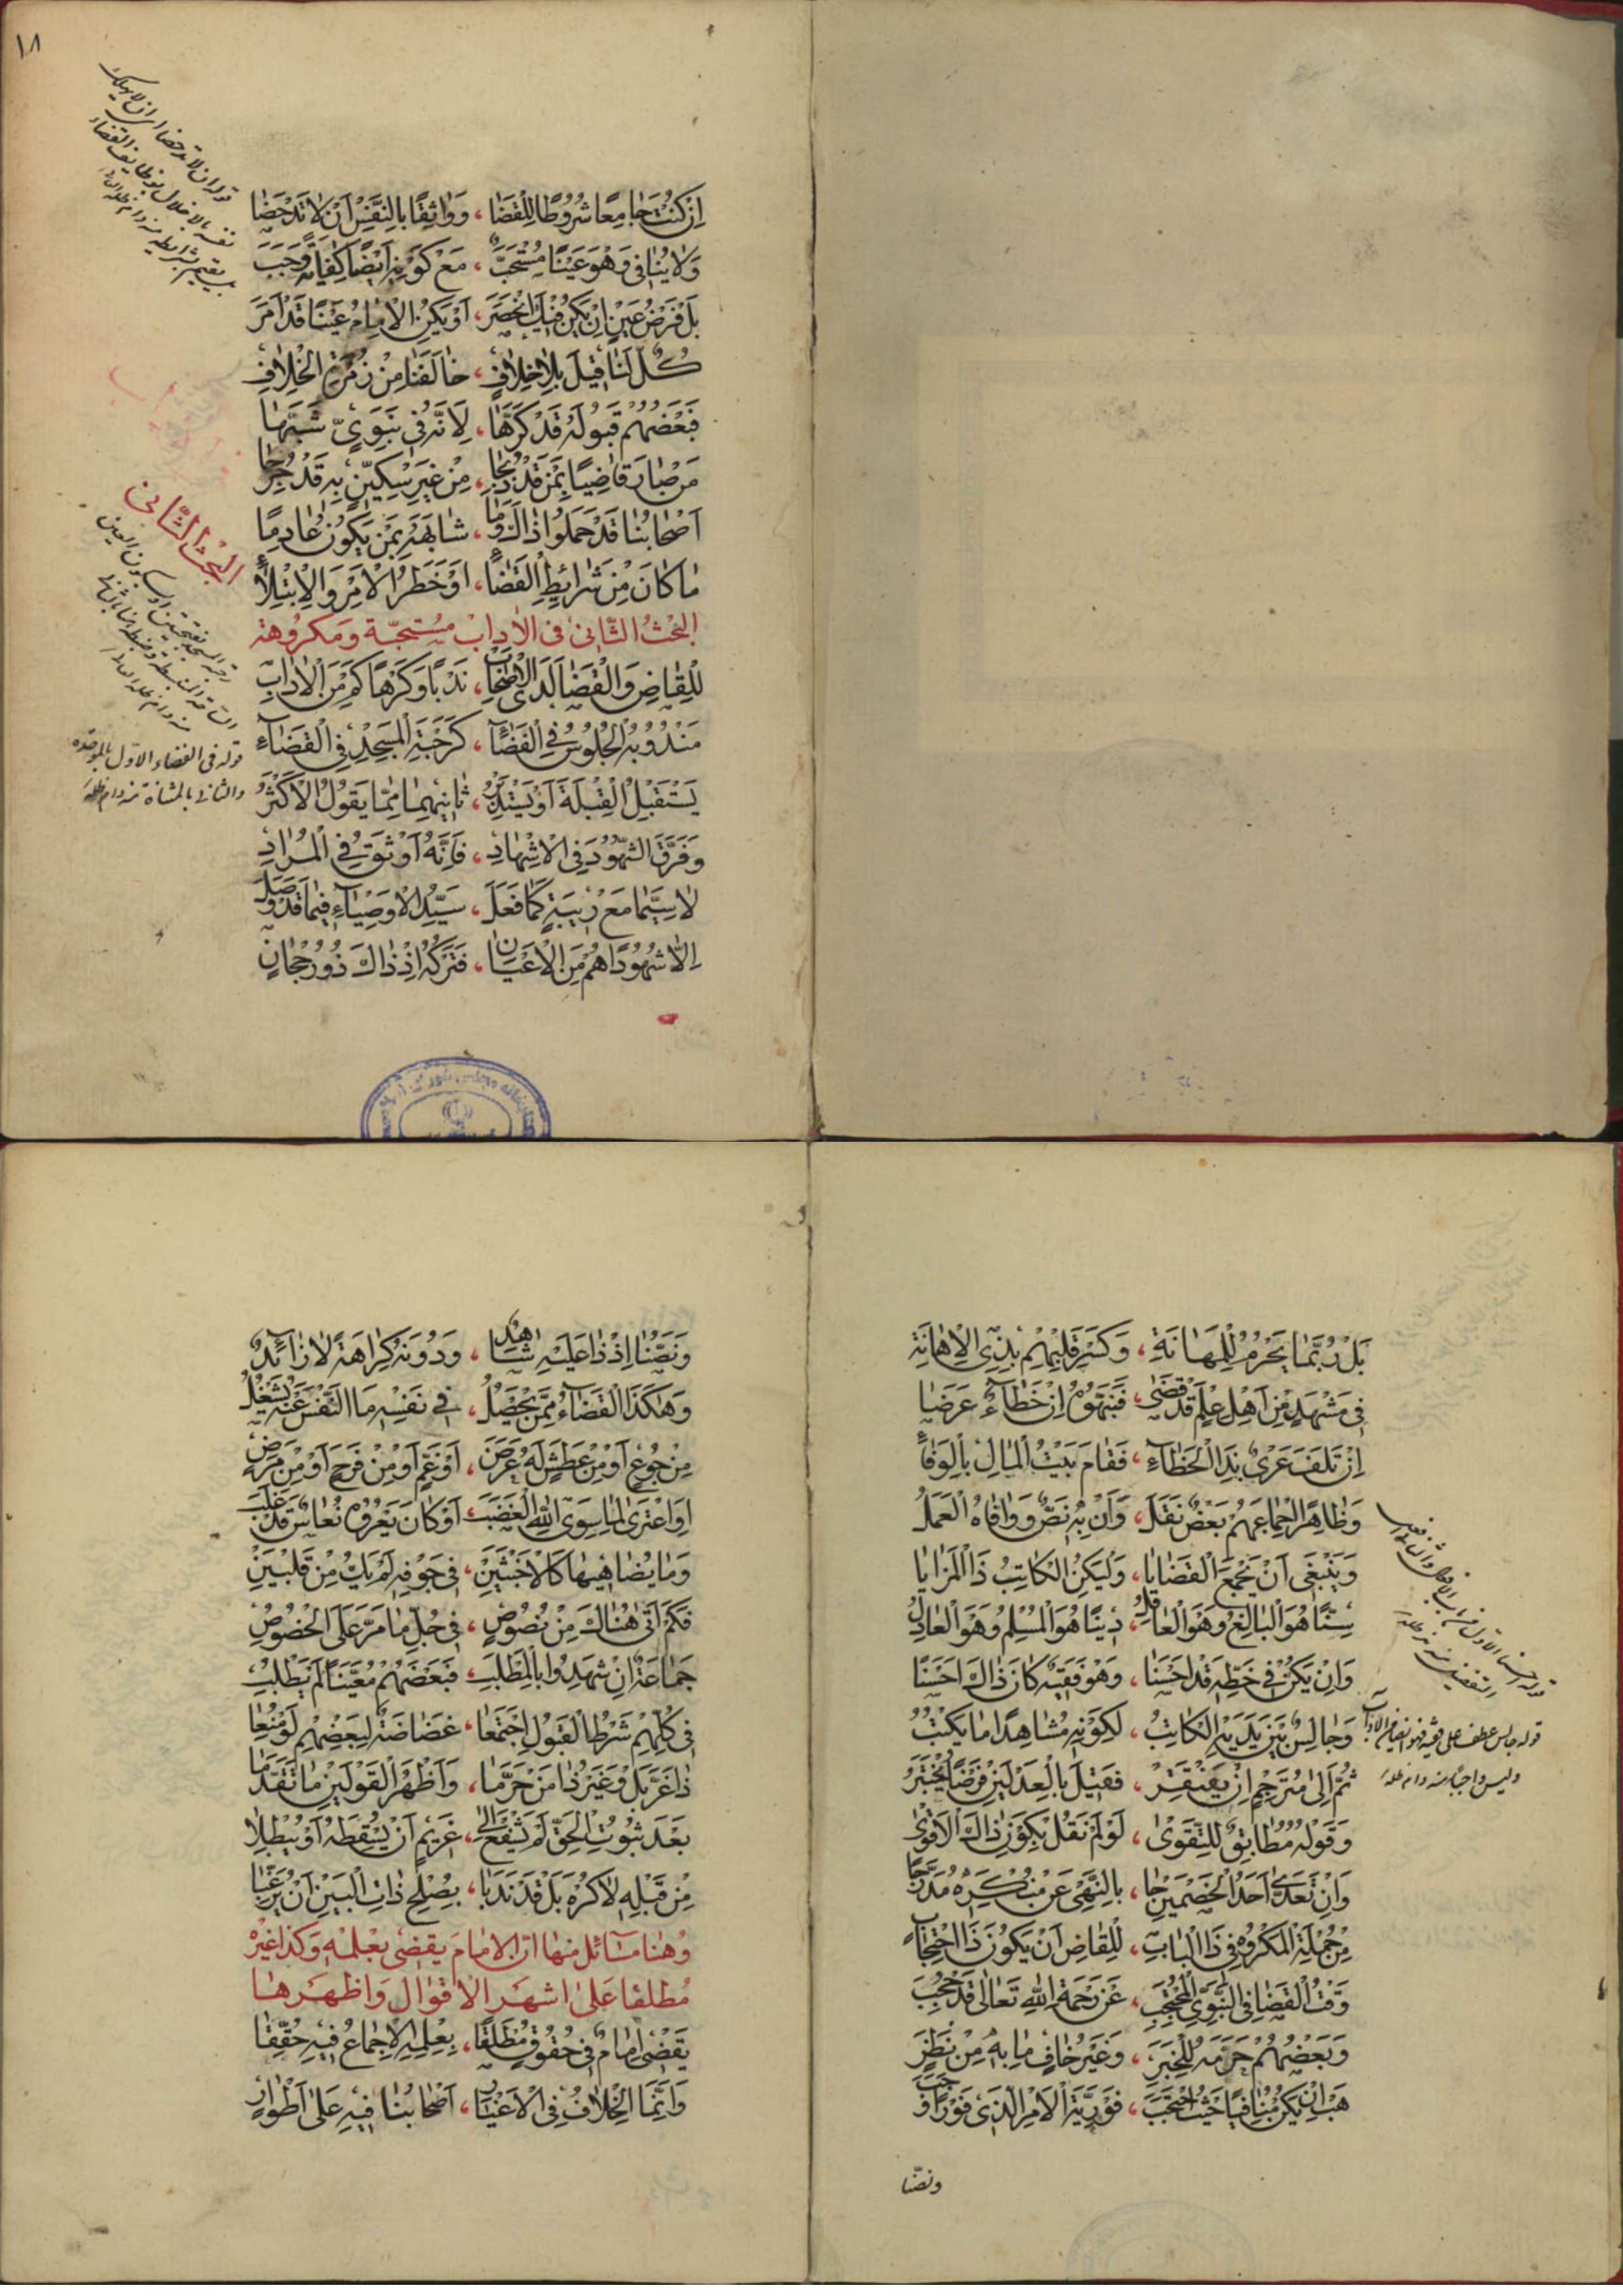 ١٨
اِنْ كُنْتَ جَامِعًا شُرُوطًا لِلْقَضَا ، وَوَاثِقًا بِالنَّفْسِ اَنْ لَا تَدْحَضَا
وَلَا يُنَافِى وَهْوَ عَيْنًا مُسْتَحَبّْ ، مَعْ كَوْنِهِ اَيْضًا كِفَايَةً وَجَبْ
بَلْ فَرْضُ عَيْنٍ اِنْ يَكُنْ فِيكَ انْحَصَرَ ، اَوْ يَكُنِ الْاِمَامُ عَيْنًا قَدْ اَمَرَ
كُلٌّ لَنَا قِيلَ بِلَا خِلَافٍ ، خَالَفَنَا مِنْ زُمْرَةِ الْخِلَافِ
فَبَعْضُهُمْ قَبُولَهُ قَدْ كَرَّهَا ، لِاَنَّهُ فِى نَبَوِىٍّ شَبَّهَا
مَنْ صَارَ قَاضِيًا بِمَنْ قَدْ ذُبِحَا ، مِنْ غَيْرِ سِكِّينٍ بِهِ قَدْ جُرِحَا
اَصْحَابُنَا قَدْ حَمَلُوا ذَاكَ وَمَا ، شَابَهَهُ بِمَنْ يَكُونُ عَادِمًا
مَا كَانَ مِنْ شَرَائِطِ الْقَضَاءِ ، اَوْ خَطَرُ الْاَمْرِ وَالْاِبْتِلَاءِ
البحث الثّانى فى الاداب مستحبّة ومكروهة
لِلْقَاضِ وَالْقَضَا لَدَى الْاَصْحَابِ ، نَدْبًا وَكَرْهًا كَمْ مِنَ الْاٰدَابِ
مَنْدُوبُهُ الْجُلُوسُ فِى الْفَضَاءِ ، كَرَحْبَةِ الْمَسْجِدِ فِى الْقَضَاءِ
يَسْتَقْبِلُ الْقِبْلَةَ اَوْ يَسْتَدْبِرُ ، ثَانِيهِمَا مِمَّا يَقُولُ الْاَكْثَرُ
وَفَرَّقَ الشُّهُودَ فِى الْاِشْهَادِ ، فَاِنَّهُ اَوْثَقُ فِى الْمُرَادِ
لَا سِيَّمَا مَعْ رِيبَةٍ كَمَا فَعَلَ ، سَيِّدُ الْاَوْصِيَاءِ فِيمَا قَدْ وَصَلَ
اِلَّا شُهُودًا هُمْ مِنَ الْاَعْيَانِ ، فَتَرْكُهُ اِذْ ذَاكَ ذُو رُجْحَانٍ
البحث الثّانى
قوله فى الفضاء الاوّل بالموحّده
والثانى بالمثناة منه دام ظله
بَلْ رُبَّمَا يَحْرُمُ لِلْمَهَانَةِ ، وَكَسْرِ قَلْبِهِمْ بِذِى الْاِهَانَةِ
فِى مَشْهَدٍ مِنْ اَهْلِ عِلْمٍ قَدْ قَضَى ، فَنَبَّهُوهُ اِنْ خَطَاءٌ عَرَضَا
اِنْ تَلَفَ عَرَى بِذَا الْخَطَاءِ ، فَقَامَ بَيْتُ الْمَالِ بِالْوَفَاءِ
وَظَاهِرُ اِجْمَاعِهِمْ بَعْضٌ نَقَلَ ، وَاَنْ بِهِ نَصٌّ وَوَافَاهُ الْعَمَلُ
وَيَنْبَغِى اَنْ يَجْمَعَ الْقَضَايَا ، وَلْيَكُنِ الْكَاتِبُ ذَا الْمَزَايَا
سِنًّا هُوَ الْبَالِغُ وَهْوَ الْعَاقِلُ ، دِينًا هُوَ الْمُسْلِمُ وَهْوَ الْعَادِلُ
وَاِنْ يَكُنْ فِى خَطِّهِ قَدْ اَحْسَنَا ، وَهْوَ فَقِيهٌ كَانَ ذَاكَ اَحْسَنَا
وَجَالِسٌ بَيْنَ يَدَيْهِ الْكَاتِبُ ، لِكَوْنِهِ مُشَاهِدًا مَا يَكْتُبُ
ثُمَّ اِلَى مُتَرْجِمٍ اِنْ يَفْتَقِرْ ، فَقِيلَ بِالْعَدْلَيْنِ فَرْضًا يُخْتَبَرُ
وَقَوْلُهُ مُطَابِقٌ لِلتَّقْوَى ، لَوْ لَمْ نَقُلْ بِكَوْنِ ذَاكَ الْاَقْوَى
وَاِنْ تَعَدَّى اَحَدُ الْخَصْمَيْنِ جَا ، بِالنَّهْىِ عَنْ مُنْكَرِهِ مُدَرَّجًا
مِنْ جُمْلَةِ الْمَكْرُوهِ فِى ذَا الْبَابِ ، لِلْقَاضِ اَنْ يَكُونَ ذَا احْتِجَابٍ
وَقْتَ الْقَضَا فِى النَّبَوِىِّ الْمُحْتَجِبْ ، عَنْ رَحْمَةِ اللّٰهِ تَعَالَى قَدْ حُجِبْ
وَبَعْضُهُمْ حَرَّمَهُ لِلْخَبَرِ ، وَغَيْرُ خَافٍ مَا بِهِ مِنْ نَظَرٍ
هَبْ اِنْ يَكُنْ مُنَافِيًا حَيْثُ احْتَجَبَ ، فَوْرِيَّةَ الْاَمْرِ الَّذِى فَوْرًا وَجَبَ
قوله جالس عطف على فقيه فهو ايضا من الاداب
وليس واجبا منه دام ظله
ونصّنا
وَنَصُّنَا اِذْ ذَا عَلَيْهِ شَاهِدٌ ، وَدُونَهُ كَرَاهَةً لَا زَائِدٌ
وَهٰكَذَا الْقَضَاءُ مِمَّنْ يَحْصُلُ ، فِى نَفْسِهِ مَا النَّفْسَ عَنْهُ يَشْغَلُ
مِنْ جُوعٍ اَوْ مِنْ عَطَشٍ لَهُ عَرَضَ ، اَوْ غَمٍّ اَوْ مِنْ فَرَحٍ اَوْ مِنْ مَرَضٍ
اَوِ اعْتَرَى لِمَا سِوَى اللّٰهِ الْغَضَبُ ، اَوْ كَانَ يَعْرُوهُ نُعَاسٌ قَدْ غَلَبَ
وَمَا يُضَاهِيهَا كَالْاَخْبَثَيْنِ ، فِى جَوْفِهِ لَمْ يَكُ مِنْ قَلْبَيْنِ
فَكَمْ اَتَى هُنَاكَ مِنْ نُصُوصٍ ، فِى جُلِّ مَا مَرَّ عَلَى الْخُصُوصِ
جَمَاعَةٌ اِنْ شَهِدُوا بِالْمَطْلَبِ ، فَبَعْضَهُمْ مُعَيَّنًا لَمْ يَطْلُبِ
فِى كُلِّهِمْ شَرْطُ الْقَبُولِ اجْتَمَعَا ، غَضَاضَةٌ لِبَعْضِهِمْ لَوْ مُنِعَا
ذَا عَزَّ بَلْ وَغَيْرُ ذَا مَنْ حَرَّمَا ، وَاَظْهَرُ الْقَوْلَيْنِ مَا تَقَدَّمَا
بَعْدَ ثُبُوتِ الْحَقِّ لَمْ يَشْفَعْ اِلَى ، غَرِيمٍ اَنْ يُسْقِطَهُ اَوْ يُبْطِلَا
مِنْ قَبْلِهِ لَا كُرْهَ بَلْ قَدْ نَدَبَا ، بِصُلْحِ ذَاتِ الْبَيْنِ اَنْ يُرَغِّبَا
وهنا مسائل منها انّ الامام يقضى بعلمه وكذا غيره
مطلقا على اشهر الاقوال واظهرها
يَقْضِى اِمَامٌ فِى حُقُوقٍ مُطْلَقًا ، بِعِلْمِهِ الْاِجْمَاعُ فِيهِ حُقِّقَا
وَاِنَّمَا الْخِلَافُ فِى الْاَغْيَارِ ، اَصْحَابُنَا فِيهِ عَلَى اَطْوَارٍ